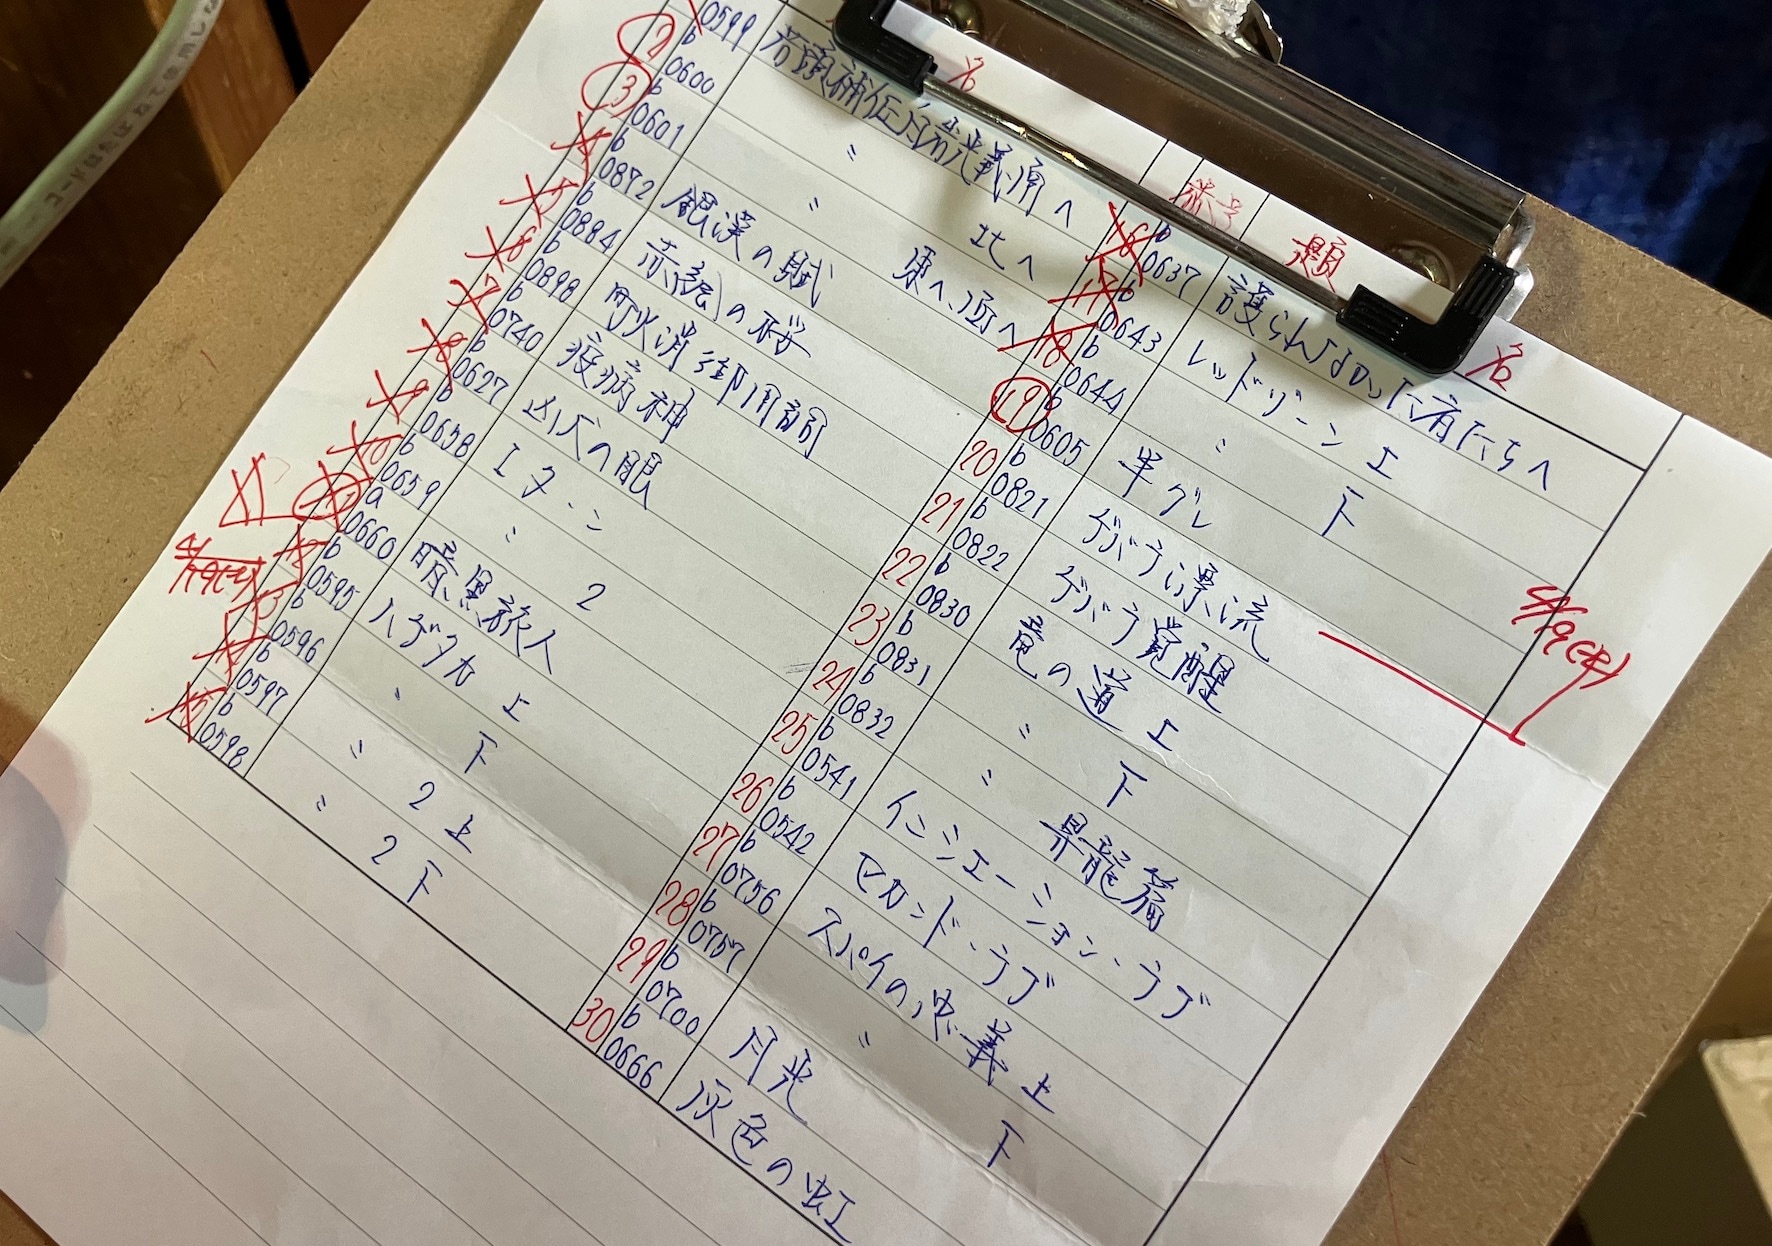 名
b 0599 若頭補佐 白岩光義 南へ
2 b 0600 〃 北へ
3 b 0601 〃 東へ、西へ
4 b 0872 銀漢の賦
5 b 0884 赤絵の桜
6 b 0898 町火消御用調
7 b 0740 疫病神
8 b 0627 凶犬の眼
9 b 0658 エターン
10 b 0659 〃 2
11 a 0660 暗黒旅人
12 b 0595 ハゲタカ 上
13 b 0596 〃 下
14 b 0597 〃 2 上
15 b 0598 〃 2 下
4/19(土)
番号 題 名
16 b 0637 護られなかった者たちへ
17 b 0643 レッドゾーン 上
18 b 0644 〃 下
19 b 0605 半グレ
20 b 0821 ゲバラ漂流
21 b 0822 ゲバラ覚醒
22 b 0830 竜の道 上
23 b 0831 〃 下
24 b 0832 〃 昇龍篇
25 b 0541 イニシエーション・ラブ
26 b 0542 セカンド・ラブ
27 b 0756 スパイの忠義 上
28 b 0757 〃 下
29 b 0700 月光
30 b 0666 灰色の虹
コードはたばねて使用し